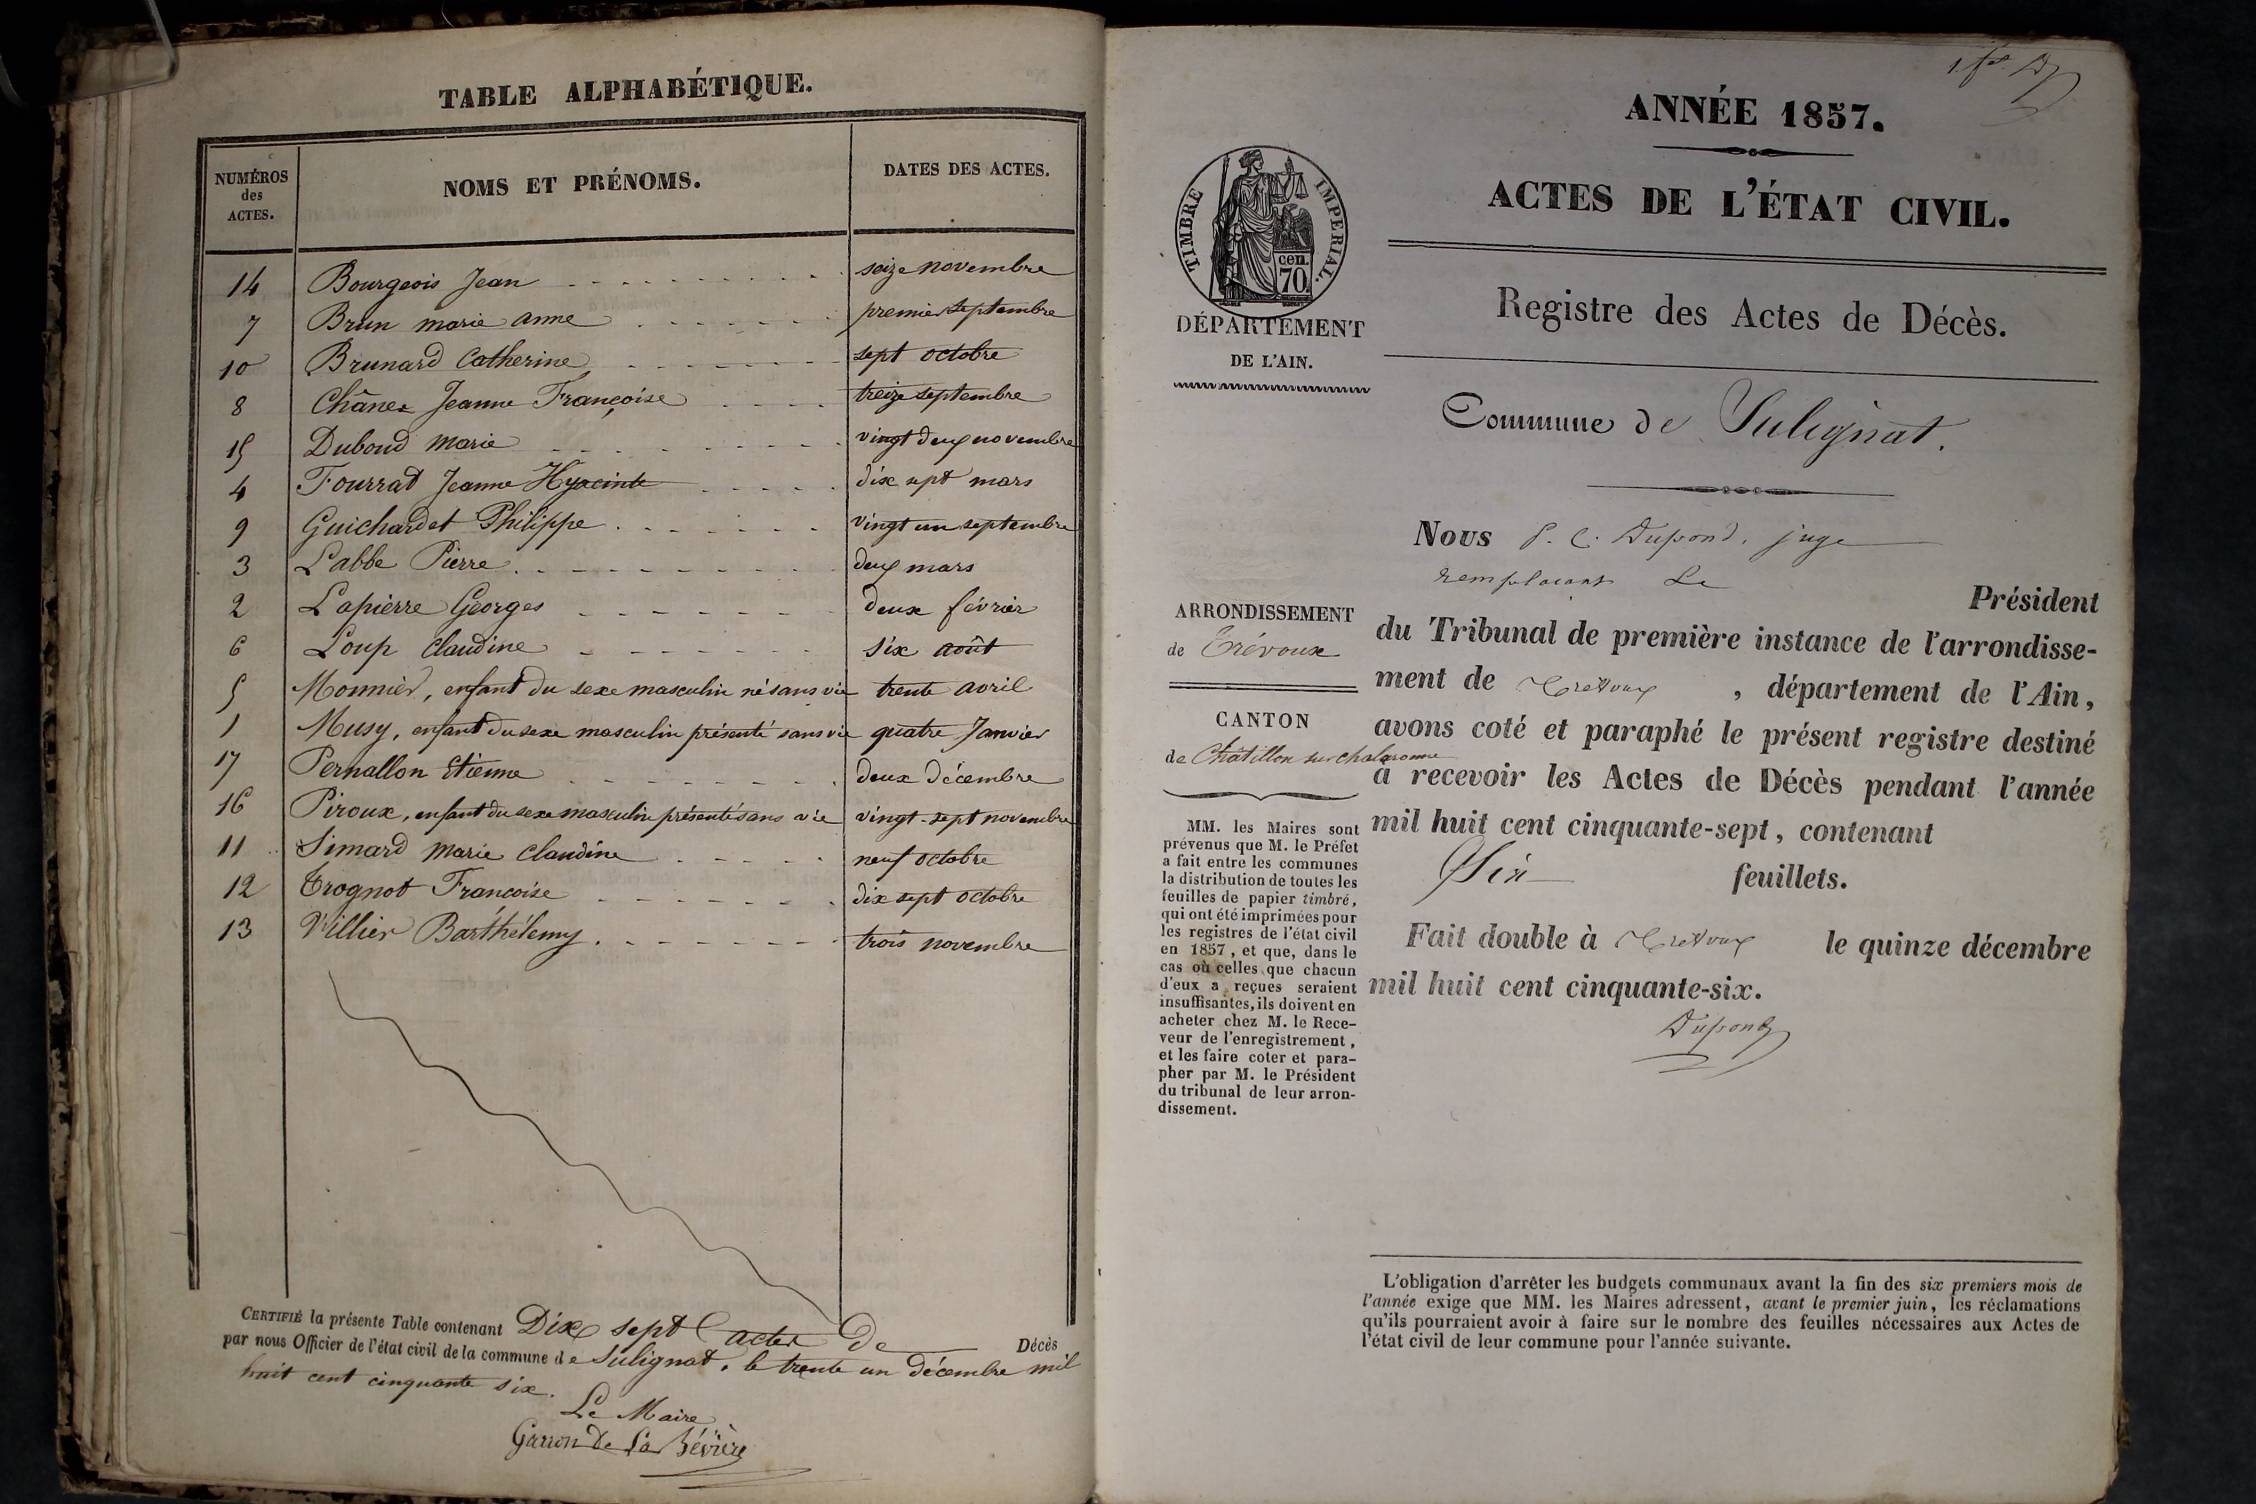 TABLE ALPHABÉTIQUE.
NUMÉROS
des
ACTES.
NOMS ET PRÉNOMS.
DATES DES ACTES.
14 Bourgeois Jean seize novembre
7 Brun marie anne premier septembre
10 Brunard Catherine sept octobre
8 Chânez Jeanne Françoise treize septembre
15 Duboud marie vingt deux novembre
4 Fourrat Jeanne Hyacinte dix sept mars
9 Guichardet Philippe vingt un septembre
3 Labbe Pierre deux mars
2 Lapierre Georges deux février
6 Loup Claudine six août
5 Monnier, enfant du sexe masculin né sans vie trente avril
1 Musy, enfant du sexe masculin présenté sans vie quatre Janvier
17 Pernallon Etienne deux Décembre
16 Piroux, enfant du sexe masculin présenté sans vie vingt-sept novembre
11 Simard marie Claudine neuf octobre
12 Trognot Francoise dix sept octobre
13 Villier Barthélemy trois novembre
CERTIFIÉ la présente Table contenant Dix sept actes De Décès
par nous Officier de l'état civil de la commune de Sulignat, le trente un décembre mil
huit cent cinquante six.
Le Maire
Garron De La Bévière
ANNÉE 1857.
ACTES DE L'ÉTAT CIVIL.
TIMBRE IMPERIAL.
cen.
70
DÉPARTEMENT
DE L'AIN.
Registre des Actes de Décès.
Commune de Sulignat.
Nous P. C. Dupond, juge
remplacant Le Président
du Tribunal de première instance de l'arrondisse-
ment de Trevoux, département de l'Ain,
avons coté et paraphé le présent registre destiné
à recevoir les Actes de Décès pendant l'année
mil huit cent cinquante-sept, contenant
Six feuillets.
Fait double à Trevoux le quinze décembre
mil huit cent cinquante-six.
Dupond
ARRONDISSEMENT
de Trévoux
CANTON
de Châtillon sur chalaronne
MM. les Maires sont
prévenus que M. le Préfet
a fait entre les communes
la distribution de toutes les
feuilles de papier timbré,
qui ont été imprimées pour
les registres de l'état civil
en 1857, et que, dans le
cas où celles que chacun
d'eux a reçues seraient
insuffisantes, ils doivent en
acheter chez M. le Rece-
veur de l'enregistrement,
et les faire coter et para-
pher par M. le Président
du tribunal de leur arron-
dissement.
L'obligation d'arrêter les budgets communaux avant la fin des six premiers mois de
l'année exige que MM. les Maires adressent, avant le premier juin, les réclamations
qu'ils pourraient avoir à faire sur le nombre des feuilles nécessaires aux Actes de
l'état civil de leur commune pour l'année suivante.